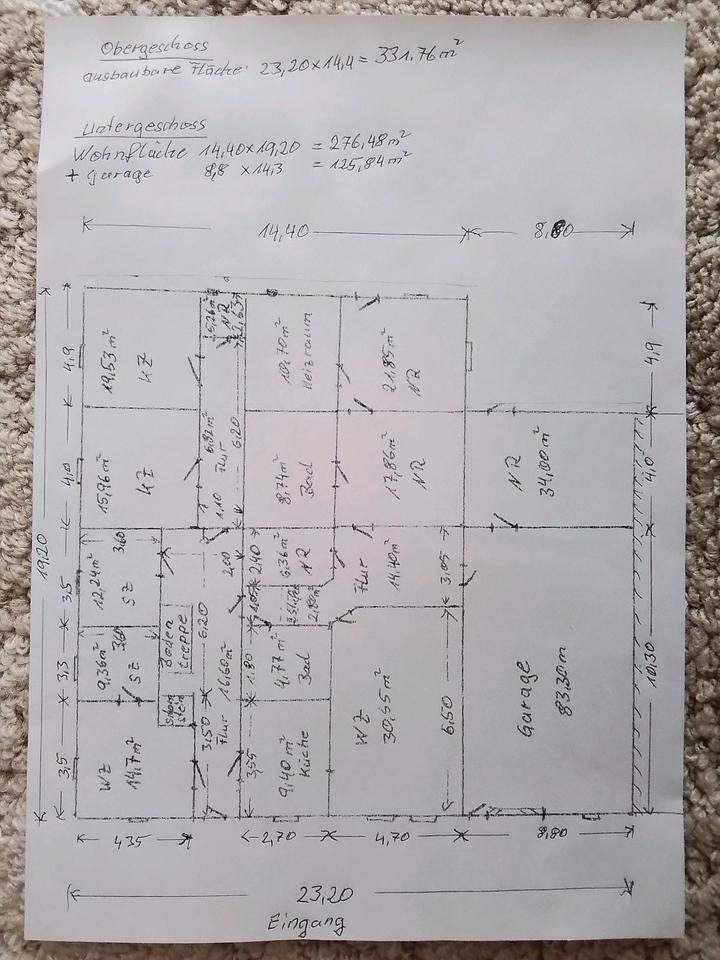 Obergeschoss
ausbaubare Fläche: 23,20 x 14,4 = 331,76 m²
Untergeschoss
Wohnfläche 14,40 x 19,20 = 276,48 m²
+ Garage 8,8 x 14,3 = 125,84 m²
14,40
8,80
19,20
4,9
4,0
3,5
3,3
3,5
19,53 m²
KZ
15,96 m²
KZ
12,24 m²
SZ
3,60
9,36 m²
SZ
3,60
WZ
14,7 m²
NR
2,53
6,82 m²
Flur
6,20
1,10
10,70 m²
Heizraum
21,85 m²
NR
8,74 m²
Bad
17,86 m²
NR
NR
34,00 m²
4,9
4,0
10,30
2,00
2,40
6,36 m²
NR
Flur
14,40 m²
3,05
Boden
treppe
6,20
16,60 m²
Flur
3,50
1,80
4,77 m²
Bad
3,55
9,40 m²
Küche
WZ
30,55 m²
6,50
Garage
83,30 m
435
2,70
4,70
8,80
23,20
Eingang